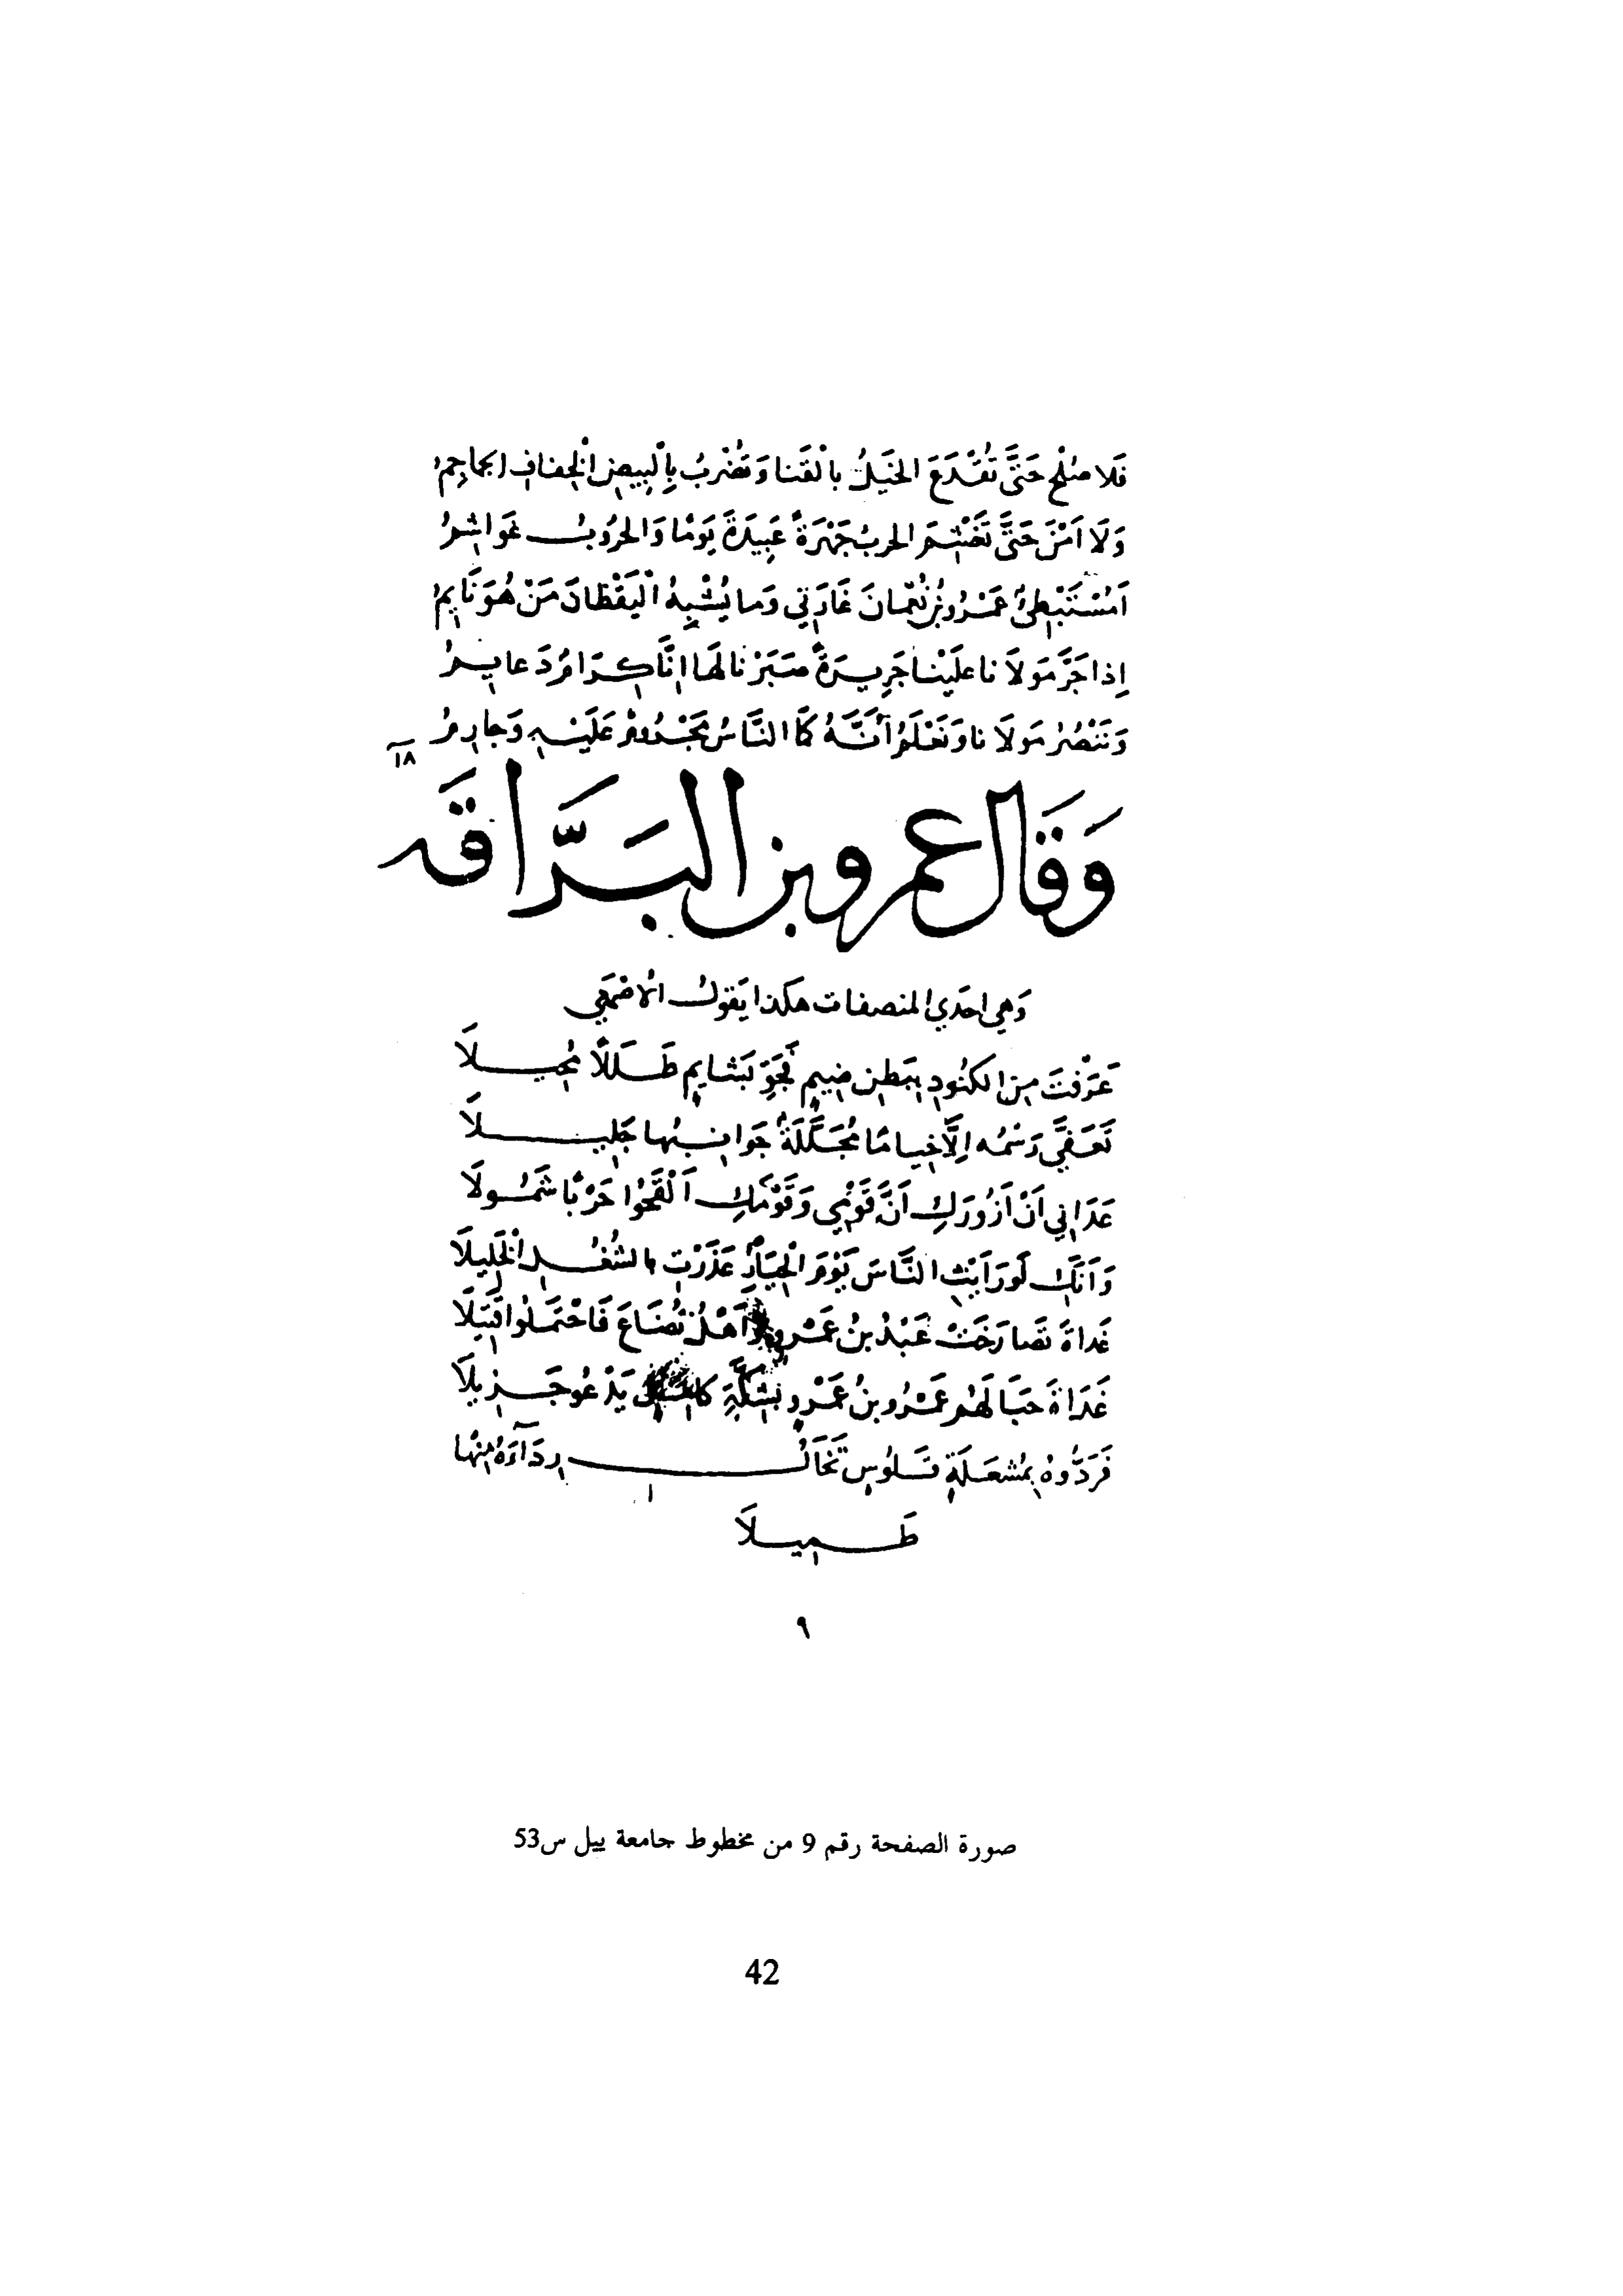 فَلا صُلْحَ حَتَّى تُقْدَعَ الخَيْلُ بالْقَنا وَتُضْرَبُ بِالْبِيضِ الْخِفافِ الجماجِمُ
وَلَا اَمْنَ حَتَّى تَغْشِمَ الحربُ جَهْرَةً عَبِيدَةَ يَوْمًا وَالحُرُوبُ غَوَاشِمُ
اَمُسْتَبْطِئٌ عَمْرُو بْنُ نُعْمانَ غَارَتِي وَما يُشْبِهُ الْيَقْظانَ مَنْ هُوَ نَايِمُ
اِذا جَرَّ مَوْلَانا علَيْنا جَرِيرَةً صَبَرْنا لَهَا اِنَّا كِرَامٌ دَعايِمُ
وَنَنْصُرُ مَوْلَانا وَنَعْلَمُ اَنَّهُ كَما النَّاسُ مَجْرُومٌ عَلَيْهِ وَجارِمُ
١٨
وَقَال عمرو بن البَرَّاقَه
وَهِي احدَي المنصفات هكذا يَقولُ الاصْمَعِي
عَرَفْتَ مِنَ الكَنُودِ بِبَطنِ ضِيمٍ فَجَوِّ بَشَايِمٍ طَلَلًا مُحِيلَا
تَعَفَّي رَسْمُه اِلَّا خِيامًا مُجَلَّلَةً جَوانِبُها جَلِيلَا
عَدَانِي اَنْ اَزُورَكِ اَنَّ قَوْمِي وَقَوْمَكِ اَلْقَحُوا حَرْبًا شَمُولَا
وَاَنَّكِ لَو رَاَيْتِ النَّاسَ يَوْمَ الْحِيَارِ عَذَرْتِ بالشُغُلِ الْخَلِيلَا
غَداةَ تَصارَخَتْ عَبْدُ بنُ عَمْرٍو اَهْلُ نُضَاعَ فَاحْتَمَلُوا قَتِيلَا
غَدَاةَ حَبَا لَهُم عَمْرُو بنُ عَمْرٍو بِشِكَّةِ يَدْعُو جَزِيلَا
فَرَدُّوهُ بِمُشعَلَةٍ قَلُوسٍ تَخَالُ رِدَآءَهُ مِنْها
طَمِيلَا
٩
صورة الصفحة رقم 9 من مخطوط جامعة ييل س53
42